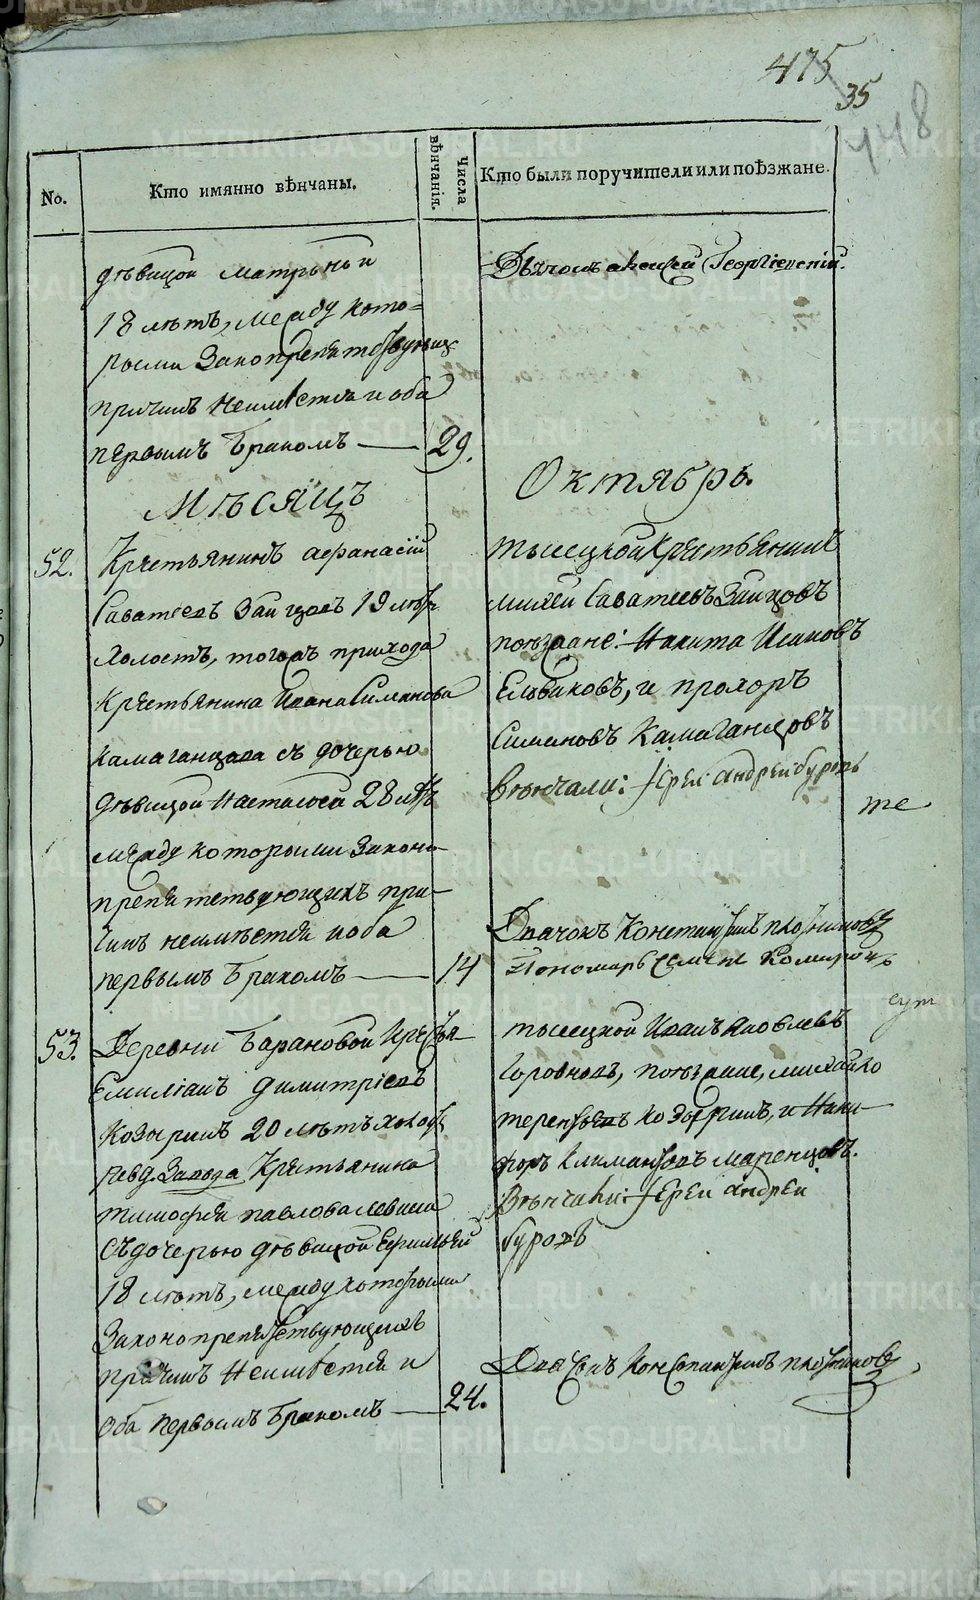 475
35
448
No.
Кто имянно вѣнчаны.
Числа вѣнчанія.
Кто были поручители или поѣзжане.
дѣвицой матрыной
18 лѣтъ, между кото-
рыми законопрепятствующихъ
причинъ неимѣется и оба
первымъ бракомъ — 29.
Дьячокъ алексей Георгіевскій.
Мѣсяцъ
Октябрь.
52. Крестьянинъ афанасій
Саватеевъ Заицовъ 19 лѣтъ
холостъ, тогожъ прихода
крестьянина Ивана Симанова
камаганцова съ дочерью
дѣвицой Настасьей 28 лѣтъ
между которыми законо-
препятствующихъ при-
чинъ неимѣется и оба
первымъ бракомъ — 14
тысецкой крестьянинъ
михей Саватеевъ Заицовъ
поѣзжане: Никита Исаковъ
и прохоръ
Симановъ Камаганцовъ
Вѣнчали: Іерей андрей буровъ
те
Дьячокъ Константинъ плотниковъ
Пономарь семенъ
53. Деревни Барановой Кресья
Емиліанъ Димитріевъ
Козыринъ 20 лѣтъ холостъ
завода Крестьянина
тимофея павлова
съ дочерью дѣвицой
18 лѣтъ, между которыми
законопрепятствующихъ
причинъ неимѣется и
оба первымъ бракомъ — 24.
тысецкой Иванъ Яковлевъ
поѣзжане, михайло
терентьевъ Козыринъ, и Ники-
форъ Климантовъ
Вѣнчали: Іерей андрей
буровъ
Дьячокъ Константинъ плотниковъ
METRIKI.GASO-URAL.RU